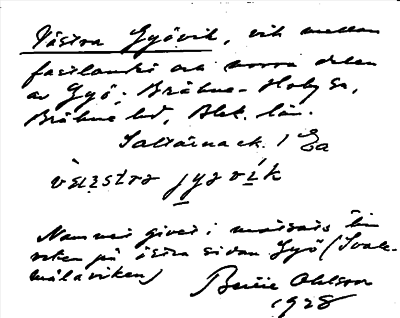 Västra Gyövik, vik mellan
fastlandet och norra delen
av Gyö, Bräkne-Hoby sn,
Bräkne hd, Blek. län.
Saltärna ek. 1 Ea
væ̀stra jyøvik
Namnet givet i motsats till
viken på östra sidan Gyö (Svale-
målaviken)
Bertil Ohlsson
1928